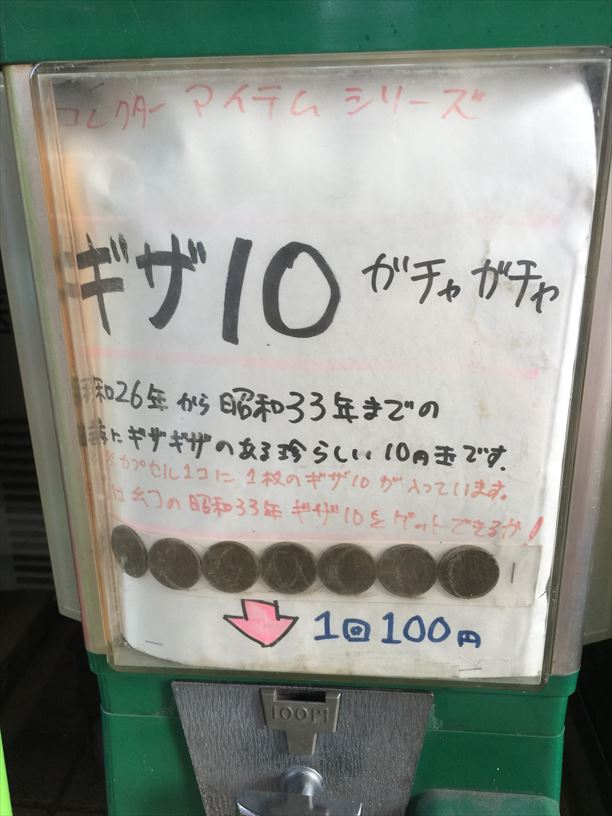 コレクターアイテムシリーズ
ギザ10 ガチャガチャ
昭和26年から昭和33年までの
ギザギザのある珍らしい10円玉です。
※カプセル1コに1枚のギザ10が入っています。
幻の昭和33年ギザ10をゲットできるか!
1回100円
100円